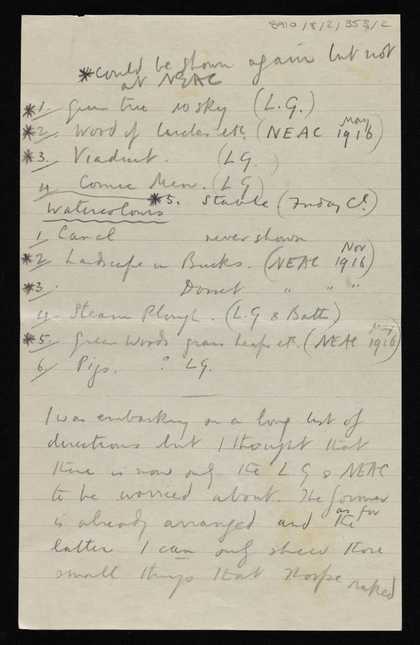 8910/8/2/353/2
*could be shown again but not
at NEAC
*1. Green tree to sky (L.G.)
*2. Wood of larches etc. (NEAC May 1916)
*3. Viaduct. (LG.)
4. Comic Men. (LG)
*5. Stable (Friday Cl.)
Watercolours
1 Canal never shown
*2. Landscape in Bucks. (NEAC Nov 1916)
*3. Dorset " " "
4. Steam Plough. (L.G & Bath)
*5. Green woods grass heaps etc. (NEAC 1916)
6. Pigs. ? LG.
I was embarking on a long list of
directions but I thought that
there is now only the L G & NEAC
to be worried about. The former
is already arranged and as for the
latter I can only shew those
small things that Thorpe